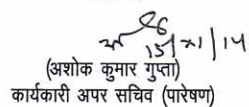 15/XI/14
(अशोक कुमार गुप्ता)
कार्यकारी अपर सचिव (पारेषण)